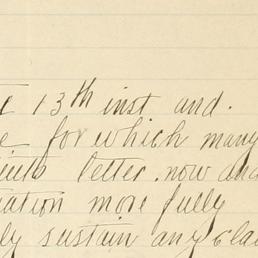 13th inst and.
for which many
letter. now and
more fully
sustain any